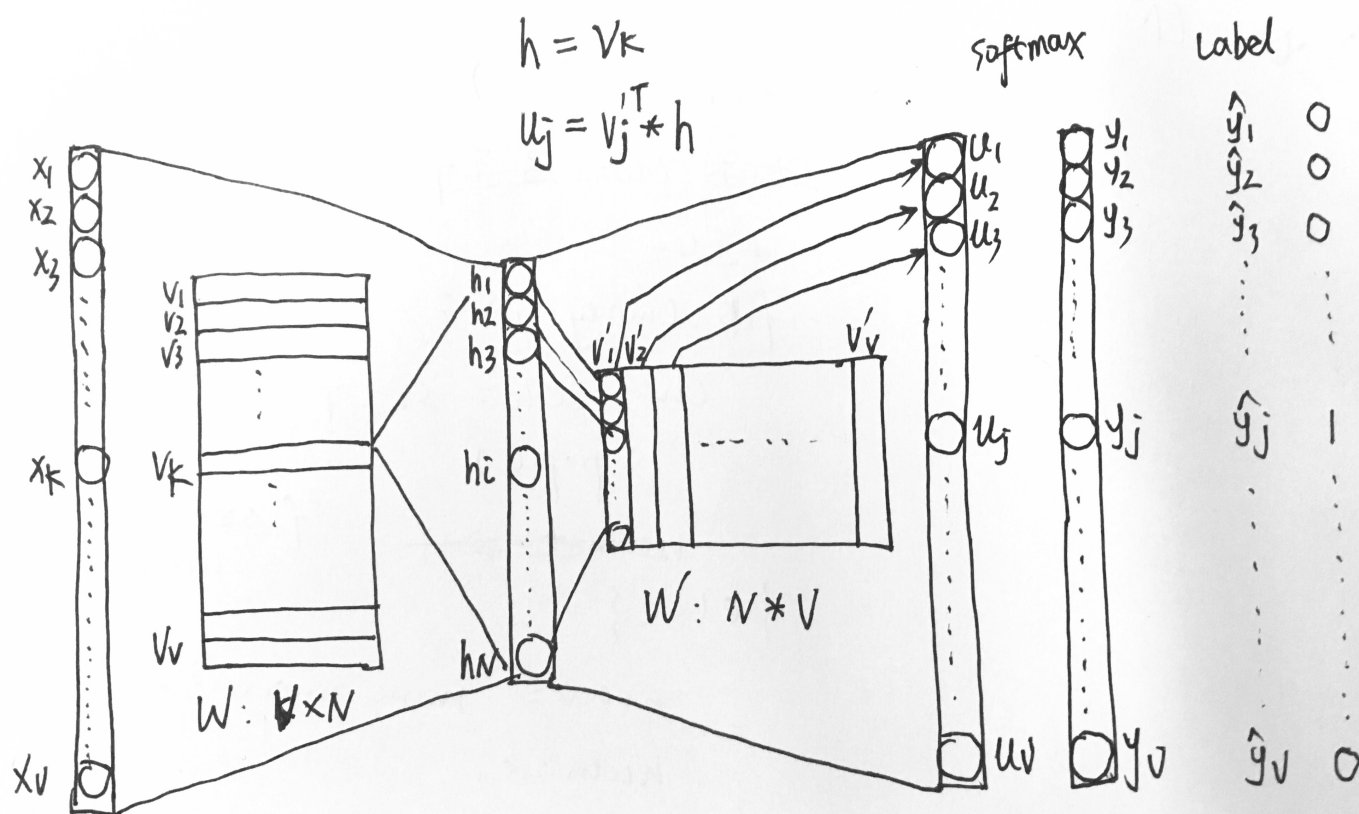 h = Vk
uj = vj'^T * h
softmax
Label
x1
x2
x3
xk
xv
v1
v2
v3
vk
Vv
W: V×N
h1
h2
h3
hi
hN
v1'
v2'
Vv'
W': N*V
u1
u2
u3
uj
uv
y1
y2
y3
yj
yv
ŷ1 0
ŷ2 0
ŷ3 0
ŷj 1
ŷv 0